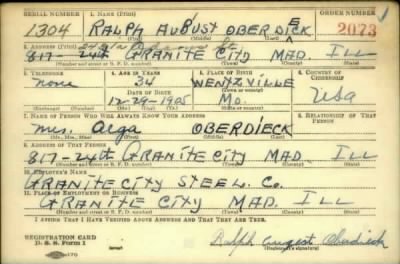 SERIAL NUMBER 1. NAME (Print) ORDER NUMBER
1304 RALPH AUGUST OBERDIECK 2073
(First) (Middle) (Last)
2. ADDRESS (Print)
817-24th GRANITE CITY MAD ILL
(Number and street or R. F. D. number) (Town) (County) (State)
3. TELEPHONE 4. AGE IN YEARS 5. PLACE OF BIRTH 6. COUNTRY OF CITIZENSHIP
none 34 WENTZVILLE
DATE OF BIRTH (Town or county)
12-29-1905 MO. USA
(Exchange) (Number) (Mo.) (Day) (Yr.) (State or country)
7. NAME OF PERSON WHO WILL ALWAYS KNOW YOUR ADDRESS 8. RELATIONSHIP OF THAT PERSON
Mrs. Olga OBERDIECK
(Mr., Mrs., Miss) (First) (Middle) (Last)
9. ADDRESS OF THAT PERSON
817-24th GRANITE CITY MAD ILL
(Number and street or R. F. D. number) (Town) (County) (State)
10. EMPLOYER'S NAME
GRANITE CITY STEEL. Co.
11. PLACE OF EMPLOYMENT OR BUSINESS
GRANITE CITY MAD. ILL
(Number and street or R. F. D. number) (Town) (County) (State)
I AFFIRM THAT I HAVE VERIFIED ABOVE ANSWERS AND THAT THEY ARE TRUE.
REGISTRATION CARD
D. S. S. Form 1 Ralph August Oberdieck
(Registrant's signature)